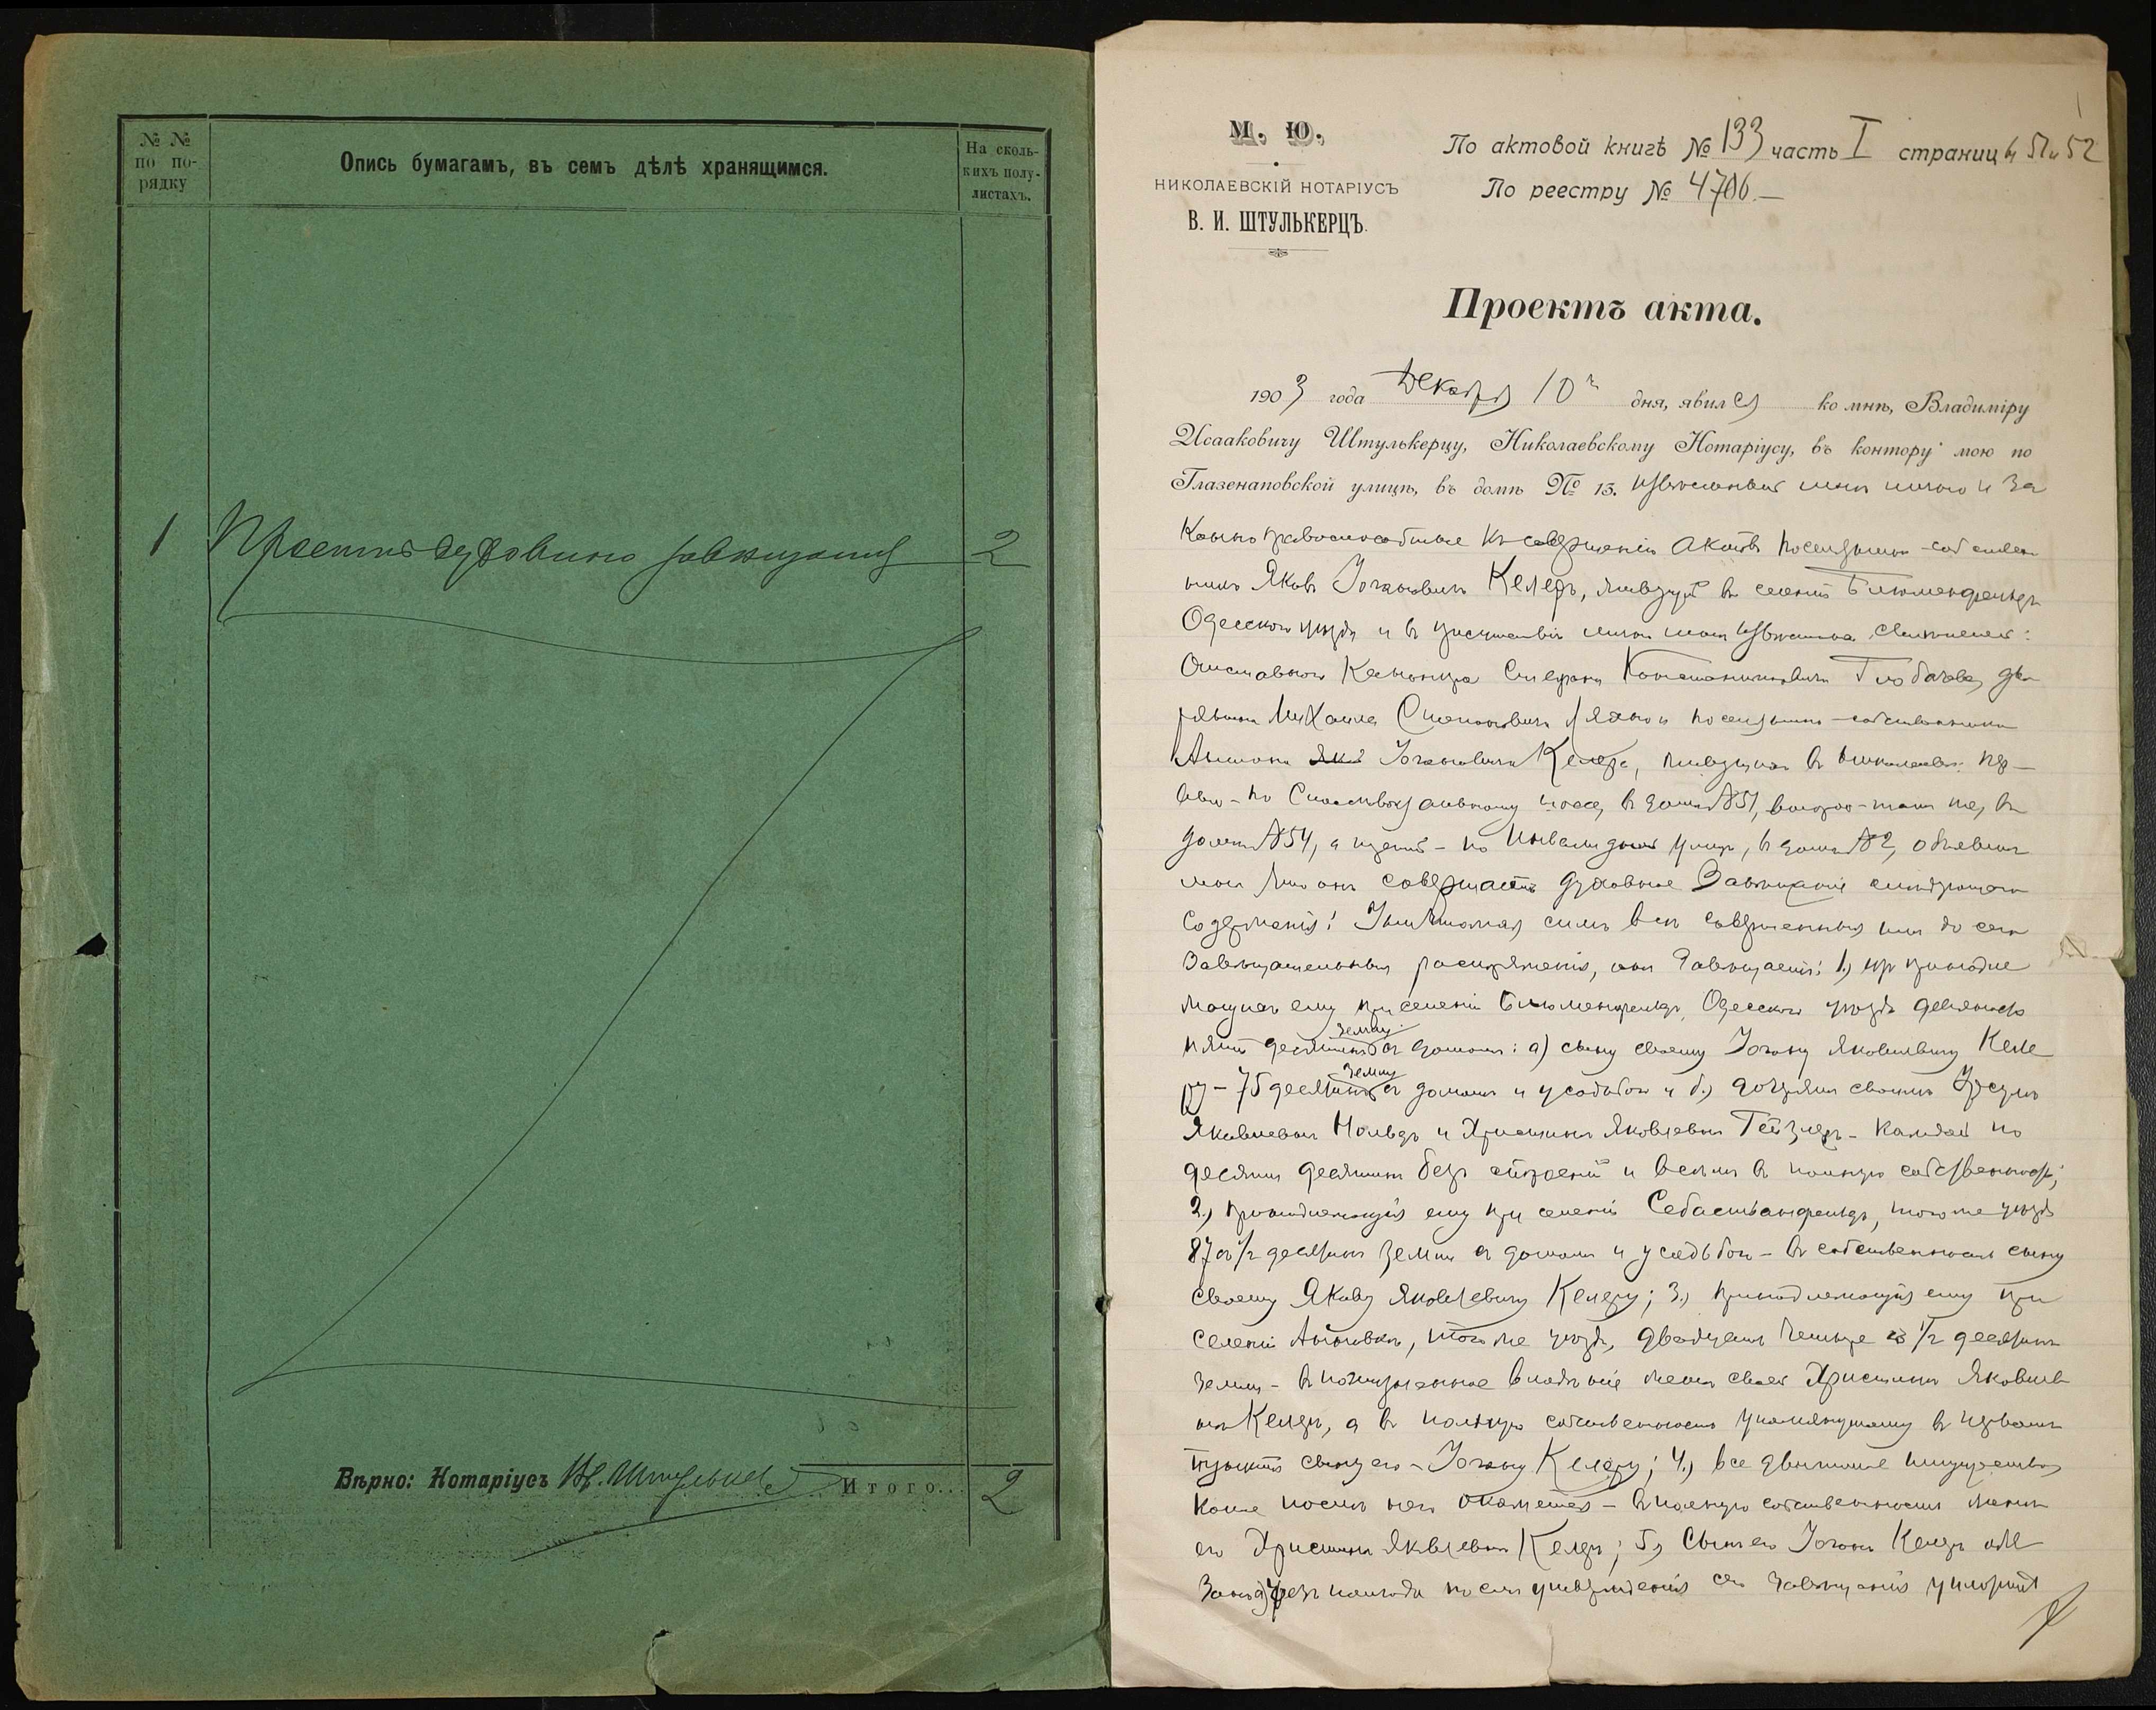 № №
по по-
рядку
Опись бумагамъ, въ семъ дѣлѣ хранящимся.
На сколь-
кихъ полу-
листахъ.
1 Проектъ духовнаго завѣщанія 2
Вѣрно: Нотаріусъ Вл. Штулькерцъ Итого... 2
М. Ю.
НИКОЛАЕВСКІЙ НОТАРІУСЪ
В. И. ШТУЛЬКЕРЦЪ.
По актовой книгѣ № 133 часть I страницы 51 и 52
По реестру № 4706.—
Проектъ акта.
1903 года Декабря 10 дня, явился ко мнѣ, Владиміру
Исааковичу Штулькерцу, Николаевскому Нотаріусу, въ контору мою по
Глазенаповской улицѣ, въ домѣ № 13. извѣстный мнѣ лично и за
конно правоспособный къ совершенію актовъ поселянинъ-собствен
никъ Яковъ Іогановичъ Келеръ, живущій въ селеніи Блюменфельдъ
Одесскаго уѣзда и въ присутствіи лично мнѣ извѣстныхъ свидѣтелей:
Отставного Капитана Стефана Константиновича дво
рянина Михаила Степановича и поселянина-собственника
Антона Іогановича Келера, живущихъ въ Николаевѣ: пер-
вый-по шоссе, въ домѣ №51, второй-тамъ же, въ
домѣ №54, а третій-по Инвалидной улицѣ, въ домѣ №2, объявилъ
мнѣ что онъ совершаетъ духовное завѣщаніе слѣдующаго
содержанія: Уничтожая симъ всѣ совершенныя имъ до сего
завѣщательныя распоряженія, онъ завѣщаетъ: 1.) изъ принадле
жащихъ ему при селеніи Блюменфельдъ, Одесскаго уѣзда девяносто
земли
пяти десятинъ съ домомъ: а) сыну своему Іогану Яковлевичу Келе
земли
ру-75 десятинъ съ домомъ и усадьбой и б.) дочерямъ своимъ
Яковлевнѣ Нольдъ и Христинѣ Яковлевнѣ Гейзлеръ-каждой по
десяти десятинъ безъ строеній и всѣмъ въ полную собственность;
2.) принадлежащія ему при селеніи Себастьянфельдъ, того же уѣзда
87 съ 1/2 десятинъ земли съ домомъ и усадьбой-въ собственность сыну
своему Якову Яковлевичу Келеру; 3.) принадлежащія ему при
селеніи Антоновкѣ, того же уѣзда, двадцать четыре съ 1/2 десятинъ
земли-въ пожизненное владѣніе женѣ своей Христинѣ Яковлев
нѣ Келеръ, а въ полную собственность упомянутому въ первомъ
пунктѣ сыну его-Іогану Келеру; 4.) все движимое имущество,
какое послѣ него окажется-въ полную собственность женѣ
его Христинѣ Яковлевнѣ Келеръ; 5.) Сынъ его Іоганъ Келеръ обя
занъ черезъ полгода послѣ утвержденія сего завѣщанія уплатить